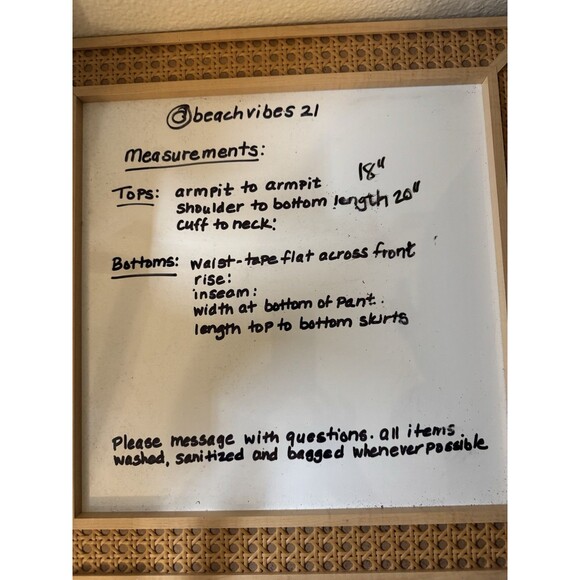 @beachvibes 21
Measurements:
Tops: armpit to armpit 18"
shoulder to bottom length 20"
cuff to neck:
Bottoms: waist-tape flat across front
rise:
inseam:
width at bottom of pant.
length top to bottom skirts
Please message with questions. all items
washed, sanitized and bagged whenever possible